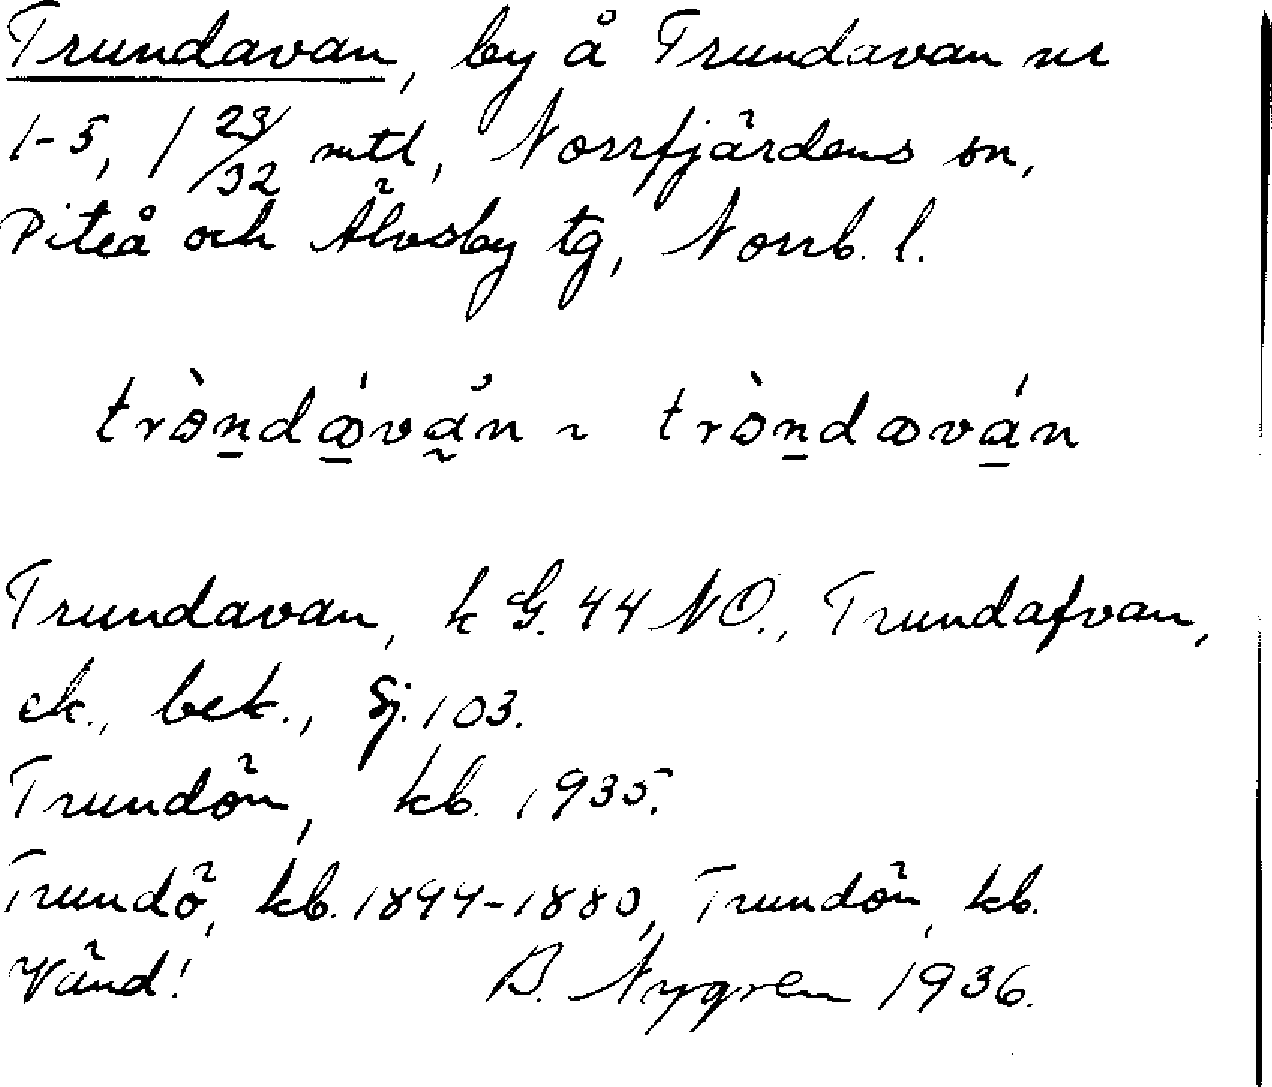 Trundavan, by å Trundavan nr
1-5, 1 23/32 mtl, Norrfjärdens sn,
Piteå och Älvsby tg, Norrb. l.
tròndæ̀vàn ~ tròndæván
Trundavan, k G. 44 NO., Trundafvan,
ek., bek., Sj. 103.
Trundön, kb. 1935.
Trundö, kb. 1894-1880, Trundön, kb.
Vänd! B. Nygren 1936.